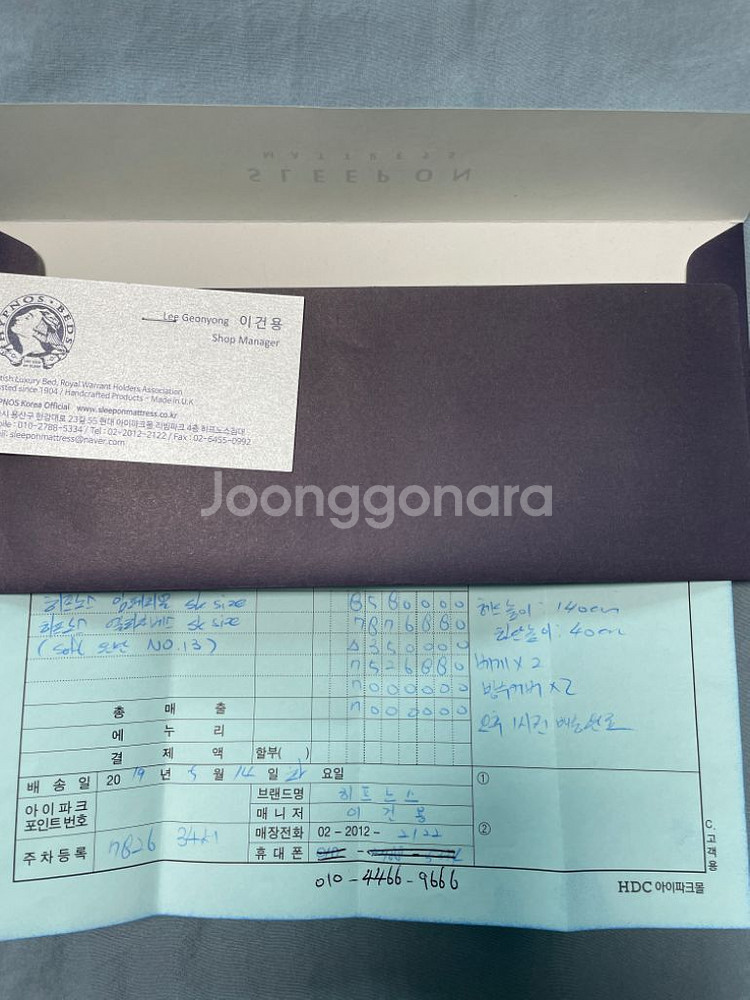 MATTRESS
SLEEPON
HYPNOS • BEDS
Lee Geonyong 이건용
Shop Manager
tish Luxury Bed, Royal Warrant Holders Association
sted since 1904 / Handcrafted Products - Made in U.K
PNOS Korea Official www.sleeponmattress.co.kr
시 용산구 한강대로 23길 55 현대 아이파크몰 리빙파크 4층 히프노스침대
bile : 010-2788-5334 / Tel : 02-2012-2122 / Fax : 02-6455-0992
il: sleeponmattress@naver.com
Joonggonara
히프노스 임페리얼 SK size 8580000
히프노스 SK size 7876880
NO.13) △350000
7526880
7000000
총 매출 7000000
에누리
결제액 할부( )
헤드높이 : 140cm
하단높이 : 40cm
베개 x 2
방수커버 x 2
오후 1시전 배송완료
배송일 2019년 5월 14일 화요일
아이파크
포인트번호
주차등록 7826
브랜드명 히프노스
매니저 이건용
매장전화 02-2012-2122
휴대폰
010-4466-9666
①
②
C.고객용
HDC 아이파크몰